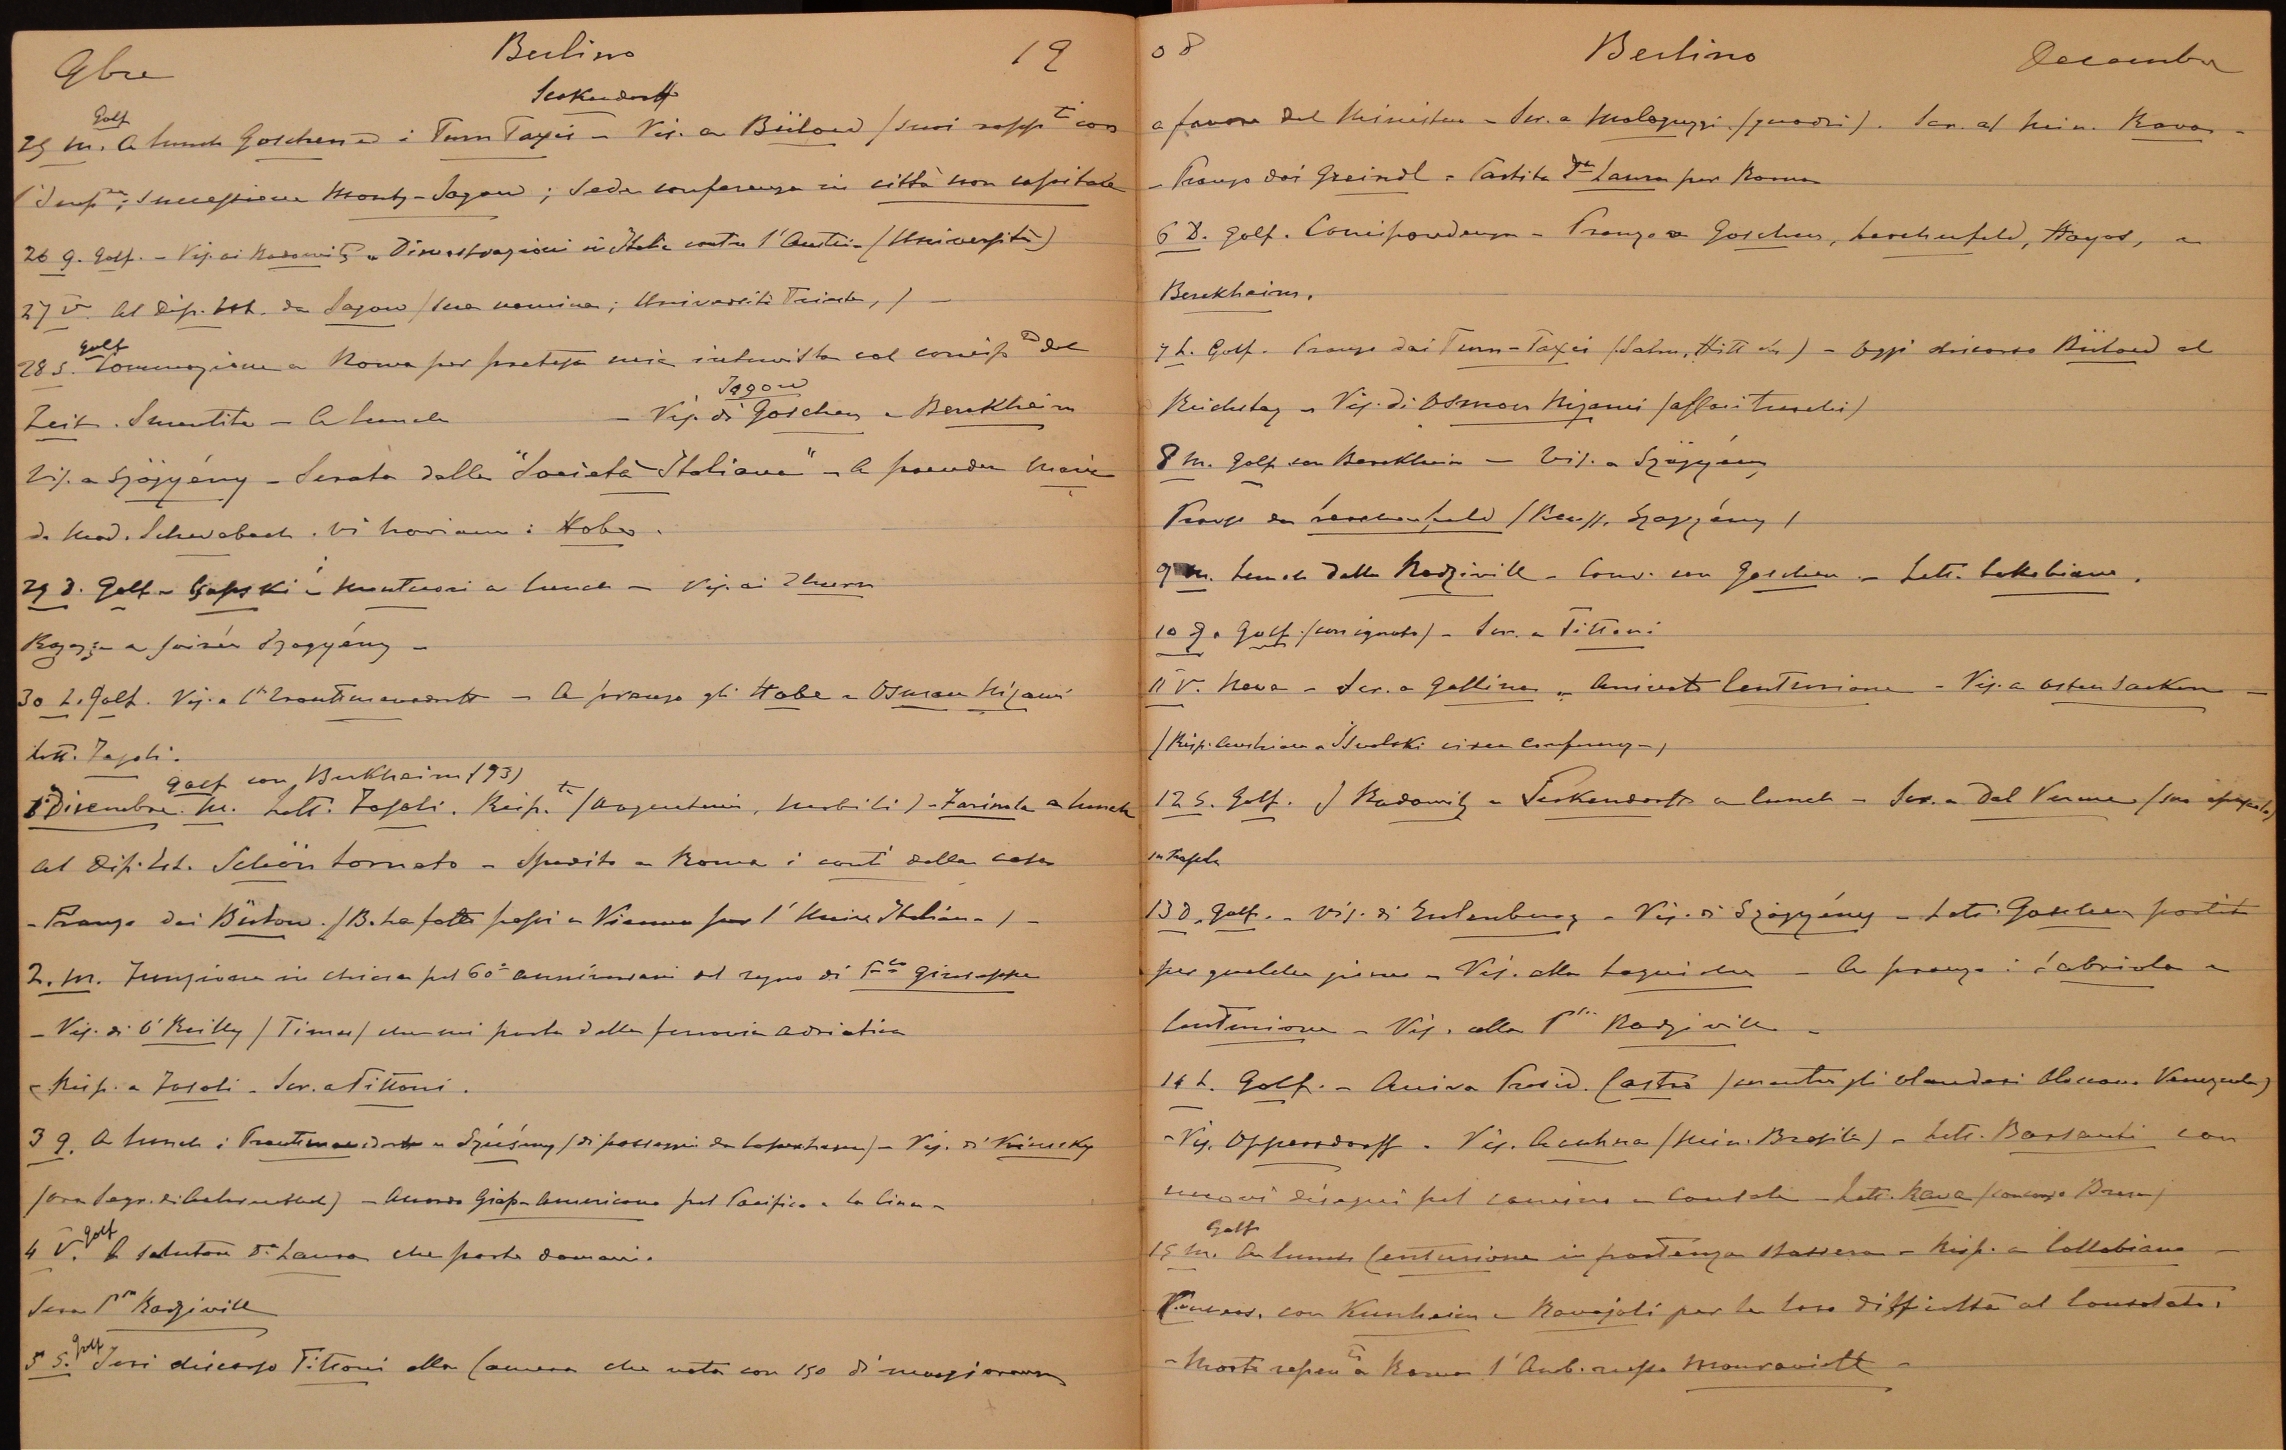 9bre Berlino 19
Seckendorff
Golf
25 M. A lunch Goschen ed i Turn Taxis – Vis. a Bülow (suoi rapp.ti con
l'Imp.re; successione Monts-Jagow; Sede conferenza in città non capitale
26 G. Golf. – Vis. ai Radowitz – Dimostrazioni in Italia contro l'Austria (Università)
27 V. Al Dip. Est. da Jagow (sua nomina; Università Trieste,) –
golf
28 S. Commozione a Roma per pretesa mia intervista col corrisp.te del
Jagow
Zeit. Smentita – A lunch – Vis. di Goschen e Berckheim
Vis. a Szögyény – Serata della "Società Italiana" – A prendere Maria
da Mad. Schwabach. Vi troviamo i Hobes.
29 D. Golf – e i Montuori a lunch – Vis. ai Thurn
Ragazze a soirée Szögyény –
30 L. Golf. Vis. a Trauttmansdorff – A pranzo gli Habe e Osman Nizami
Lett. Fasoli.
golf con Berkheim (93)
1° Dicembre. M. Lett. Fasoli. Risp.ta (Argenteria, Mobili) – Farinola a lunch
Al Dip. Est. Schön tornato – Spedito a Roma i conti della casa
– Pranzo dai Bülow. (B. ha fatto passi a Vienna per l'Univ. Italiana) –
2. M. Funzione in chiesa pel 60° anniversario del regno di F.co Giuseppe
– Vis. di O'Reilly (Times) che mi parla della ferrovia adriatica
Risp. a Fasoli – Scr. a Tittoni.
3 G. A lunch i Trauttmansdorff e (di passaggio da Copenhagen) – Vis. di Kinsky
(ora Segr. di Aehrenthal) – Accordo Giapp-Americano pel Pacifico e la Cina –
golf
4 V. A salutare D.a Laura che parte domani.
Sera P.ssa Radziwill
golf
5 S. Ieri discorso Tittoni alla Camera che vota con 150 di maggioranza
08 Berlino Decembre
a favore del Ministero – Scr. a Malaguzzi (quadri). Scr. al Min. Rava –
– Pranzo dai Greindl – Partita D.a Laura per Roma
6 D. Golf. Corrispondenza – Pranzo a Goschen, Lerchenfeld, Hoyos, e
Berckheim.
7 L. Golf. Pranzo dai Turn-Taxis (Salm, Hitt etc) – Oggi discorso Bülow al
Reichstag – Vis. di Osman Nizami (affari turchi)
8 M. Golf con Berckheim – Vis. a Szögyény
Pranzo da Lerchenfeld (Reuss, Szögyény)
9 M. Lunch dalla Radziwill – Conv. con Goschen – Lett. Collobiano.
10 G. Golf. – Scr. a Tittoni
11 V. Neva – Scr. a Gallina – Arrivato Centurione – Vis. a Osten Sacken –
(Risp. Austriaca a Iswolski circa Conferenza)
12 S. Golf. I Radowitz e Seckendorff a lunch – Scr. a Dal Verme
13 D. Golf. – Vis. di Eulenburg – Vis. di Szögyény – Lett. Goschen partito
per qualche giorno – Vis. alla Laguiche – A pranzo i Cabriola e
Centurione – Vis. alla P.ssa Radziwill –
14 L. Golf. – Arriva Presid. Castro (mentre gli olandesi bloccano Venezuela)
– Vis. Oppersdorff – Vis. Acuhna (Min. Brasile) – Lett. Barsanti con
nuovi disegni pel camino e console – Lett. Rava (
Golf
15 M. A lunch Centurione in partenza stassera – Risp. a Collobiano –
Convers. con Kunheim e Ravajoli per le loro difficoltà al Consolato.
– Morto repen.te a Roma l'Amb. russo Mouraviett –